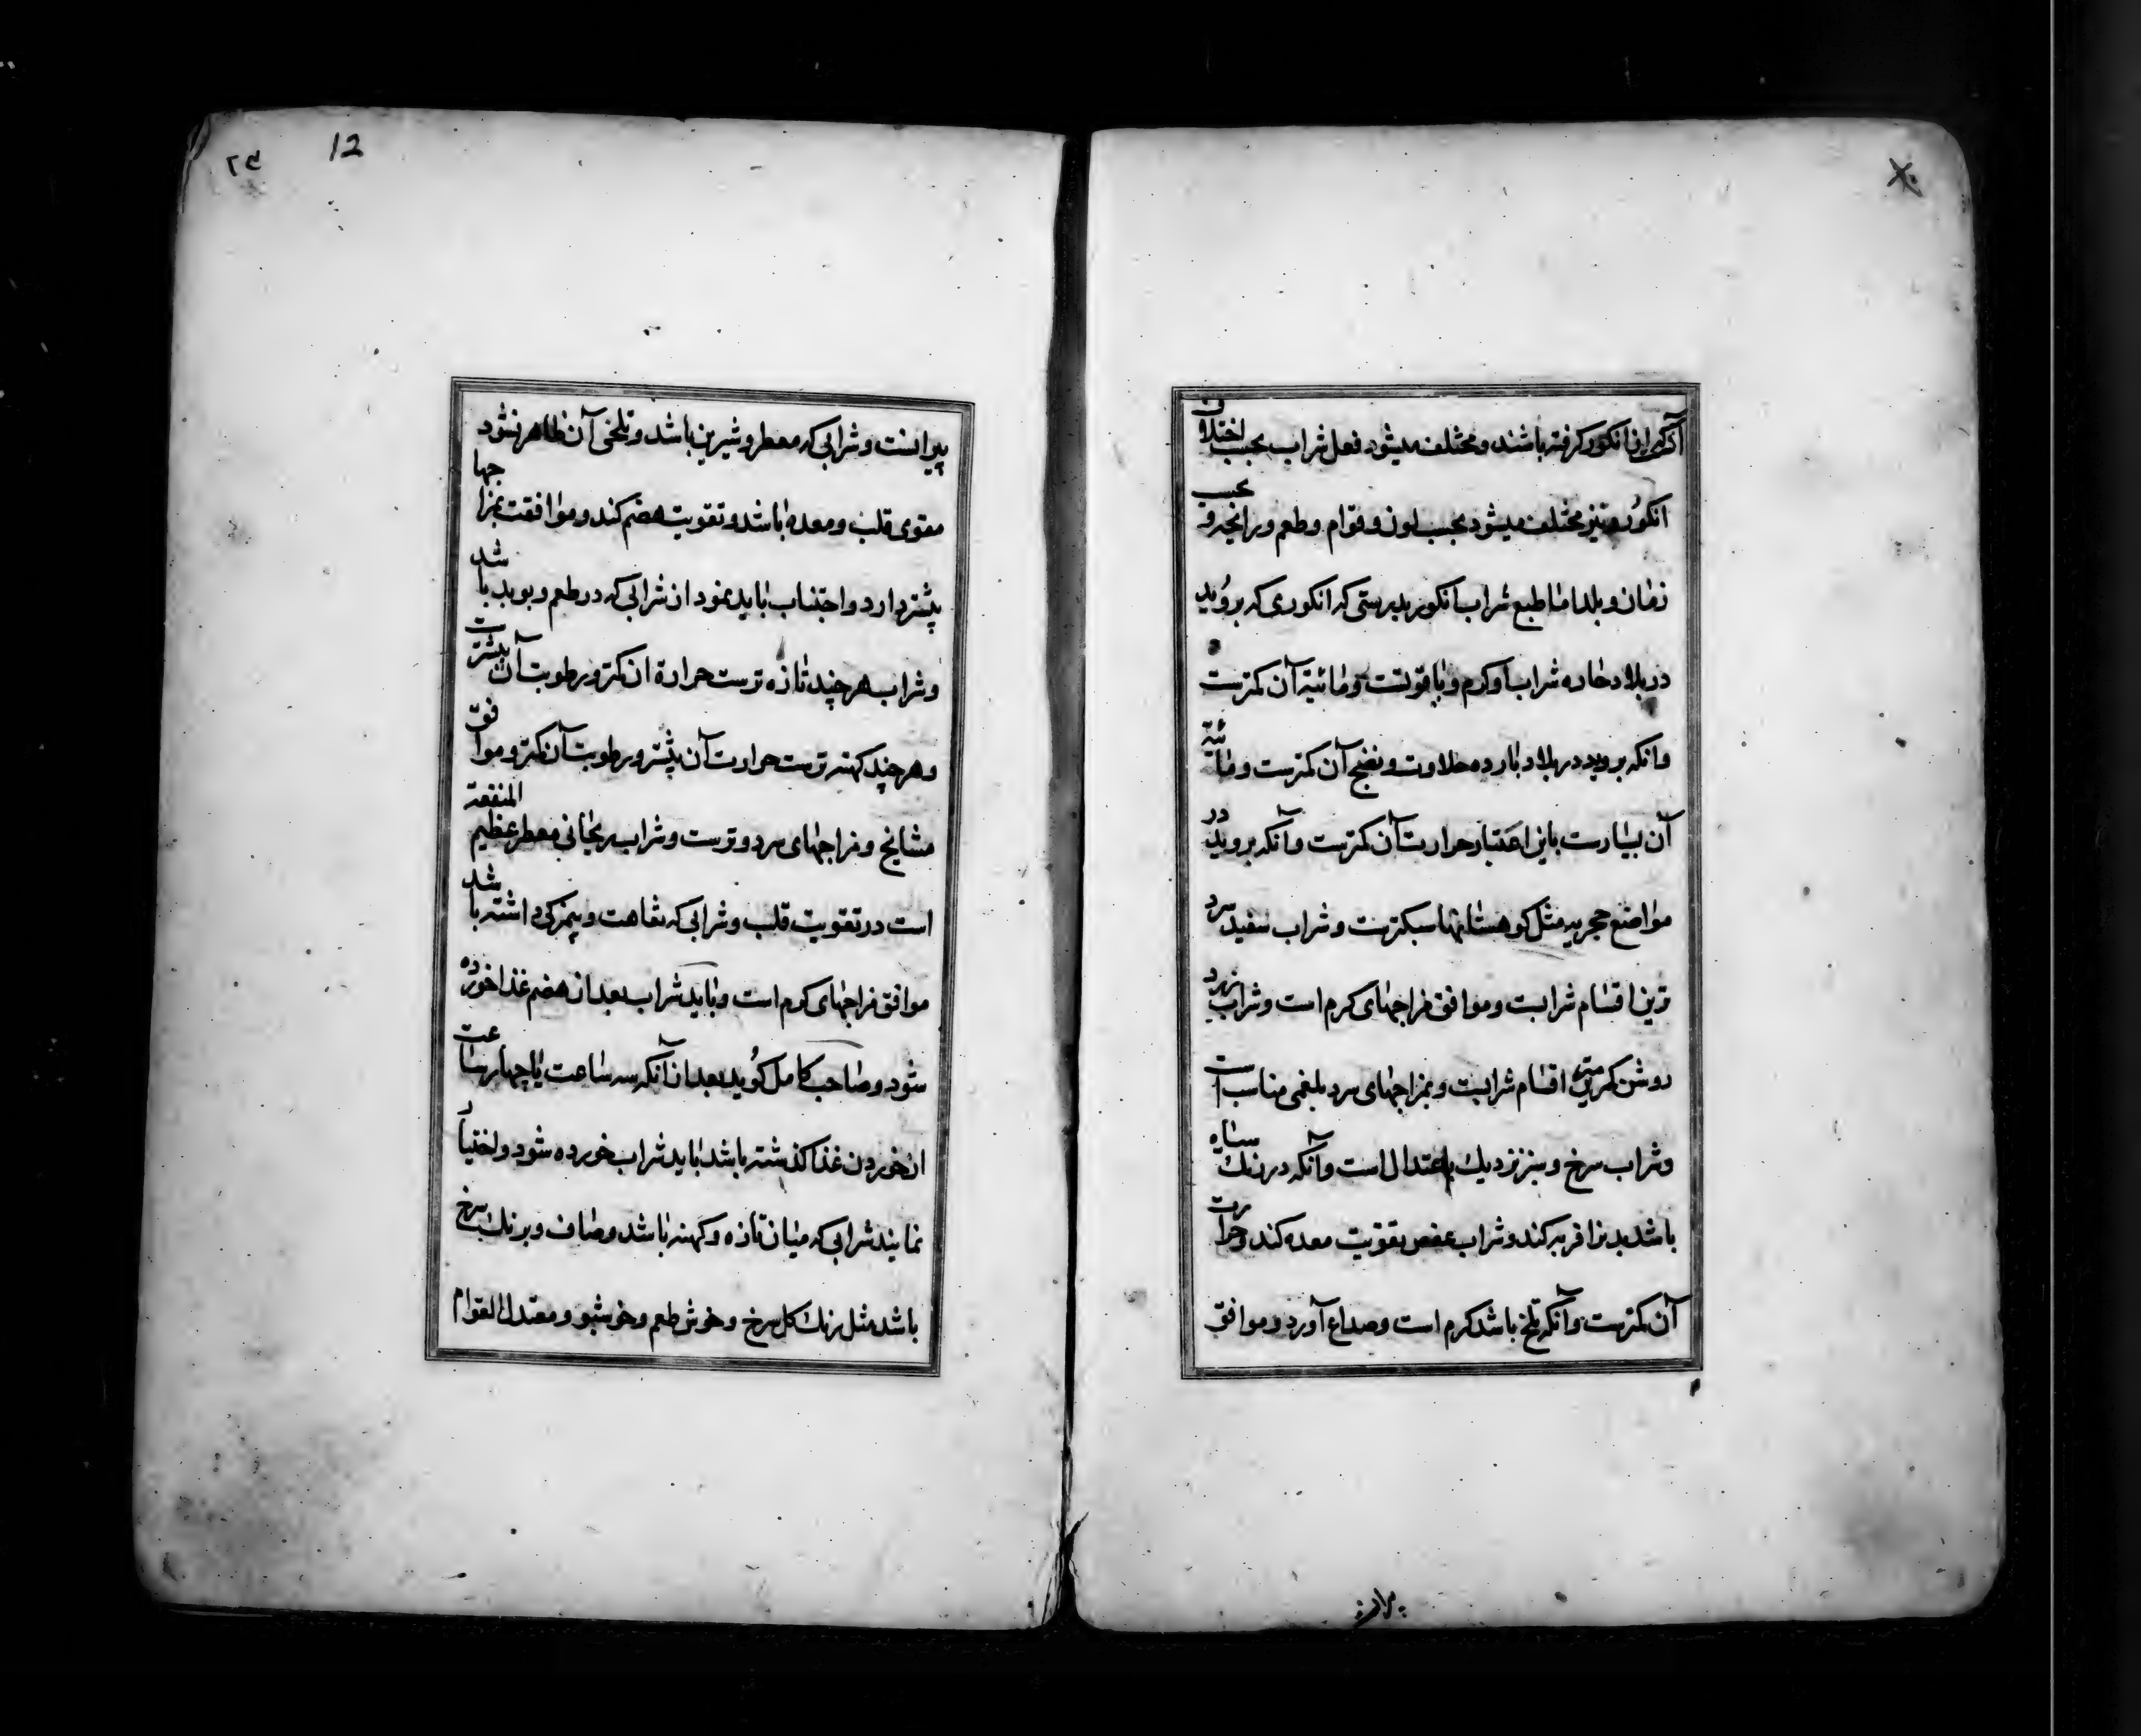 آن که ازان انکور کرفته باشند و مختلف میشود فعل شراب بحسب اختلاف
انکور و نیز مختلف میشود بحسب لون و قوام و طعم و رایحه و بحسب
زمان و بلد اما طبع شراب انکور بدرستی که انکوری که بروید
در بلاد حاره شراب او کرم و با قوتست و مائیة آن کمترست
وانکه بروید در بلاد بارده حلاوت و نضج آن کمترست و مائیة
آن بسیارست باین اعتبار حرارت آن کمترست و آنکه بروید در
مواضع حجریه مثل کوهستانها سبکترست و شراب سفید سرد
ترین اقسام شرابست و موافق مزاجهای کرم است و شراب زرد
روشن کمترین اقسام شرابست و بمزاجهای سرد بلغمی مناسب است
و شراب سرخ و سبز نزدیک باعتدال است و آنکه در رنک سیاه
باشد بدنرا فربه کند و شراب عفص تقویت معده کند و حرارت
آن کمترست و آنکه تلخ باشد کرم است و صداع آورد و موافق
۲۳ 12
پیرانست و شرابی که معطر و شیرین باشد و تلخی آن ظاهر نشود
مقوی قلب و معده باشد و تقویت هضم کند و موافقت بمزاجها
بیشتر دارد و اجتناب باید نمود از شرابی که در طعم و بو بد باشد
و شراب هر چند تازه ترست حرارة ان کمتر و رطوبت آن بیشترست
و هر چند کهنه ترست حرارت آن بیشتر و رطوبت آن کمتر و موافق
مشایخ و مزاجهای سرد و ترست و شراب ریحانی معطر عظیم المنفعة
است در تقویت قلب و شرابی که تفاهت و بیمزکی داشته باشد
موافق مزاجهای کرم است و باید شراب بعد از هضم غذا خورده
شود و صاحب کامل کوید بعد از آنکه سه ساعت یا چهار ساعت
از خوردن غذا کذشته باشد باید شراب خورده شود و اختیار
نمایند شرابی که میان تازه و کهنه باشد و صاف و برنک سرخ
باشد مثل رنک کل سرخ و خوش طعم و خوشبو و معتدل القوام